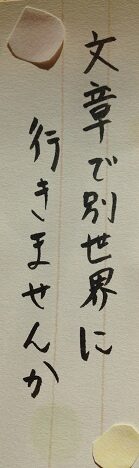 文章で別世界に
行きませんか